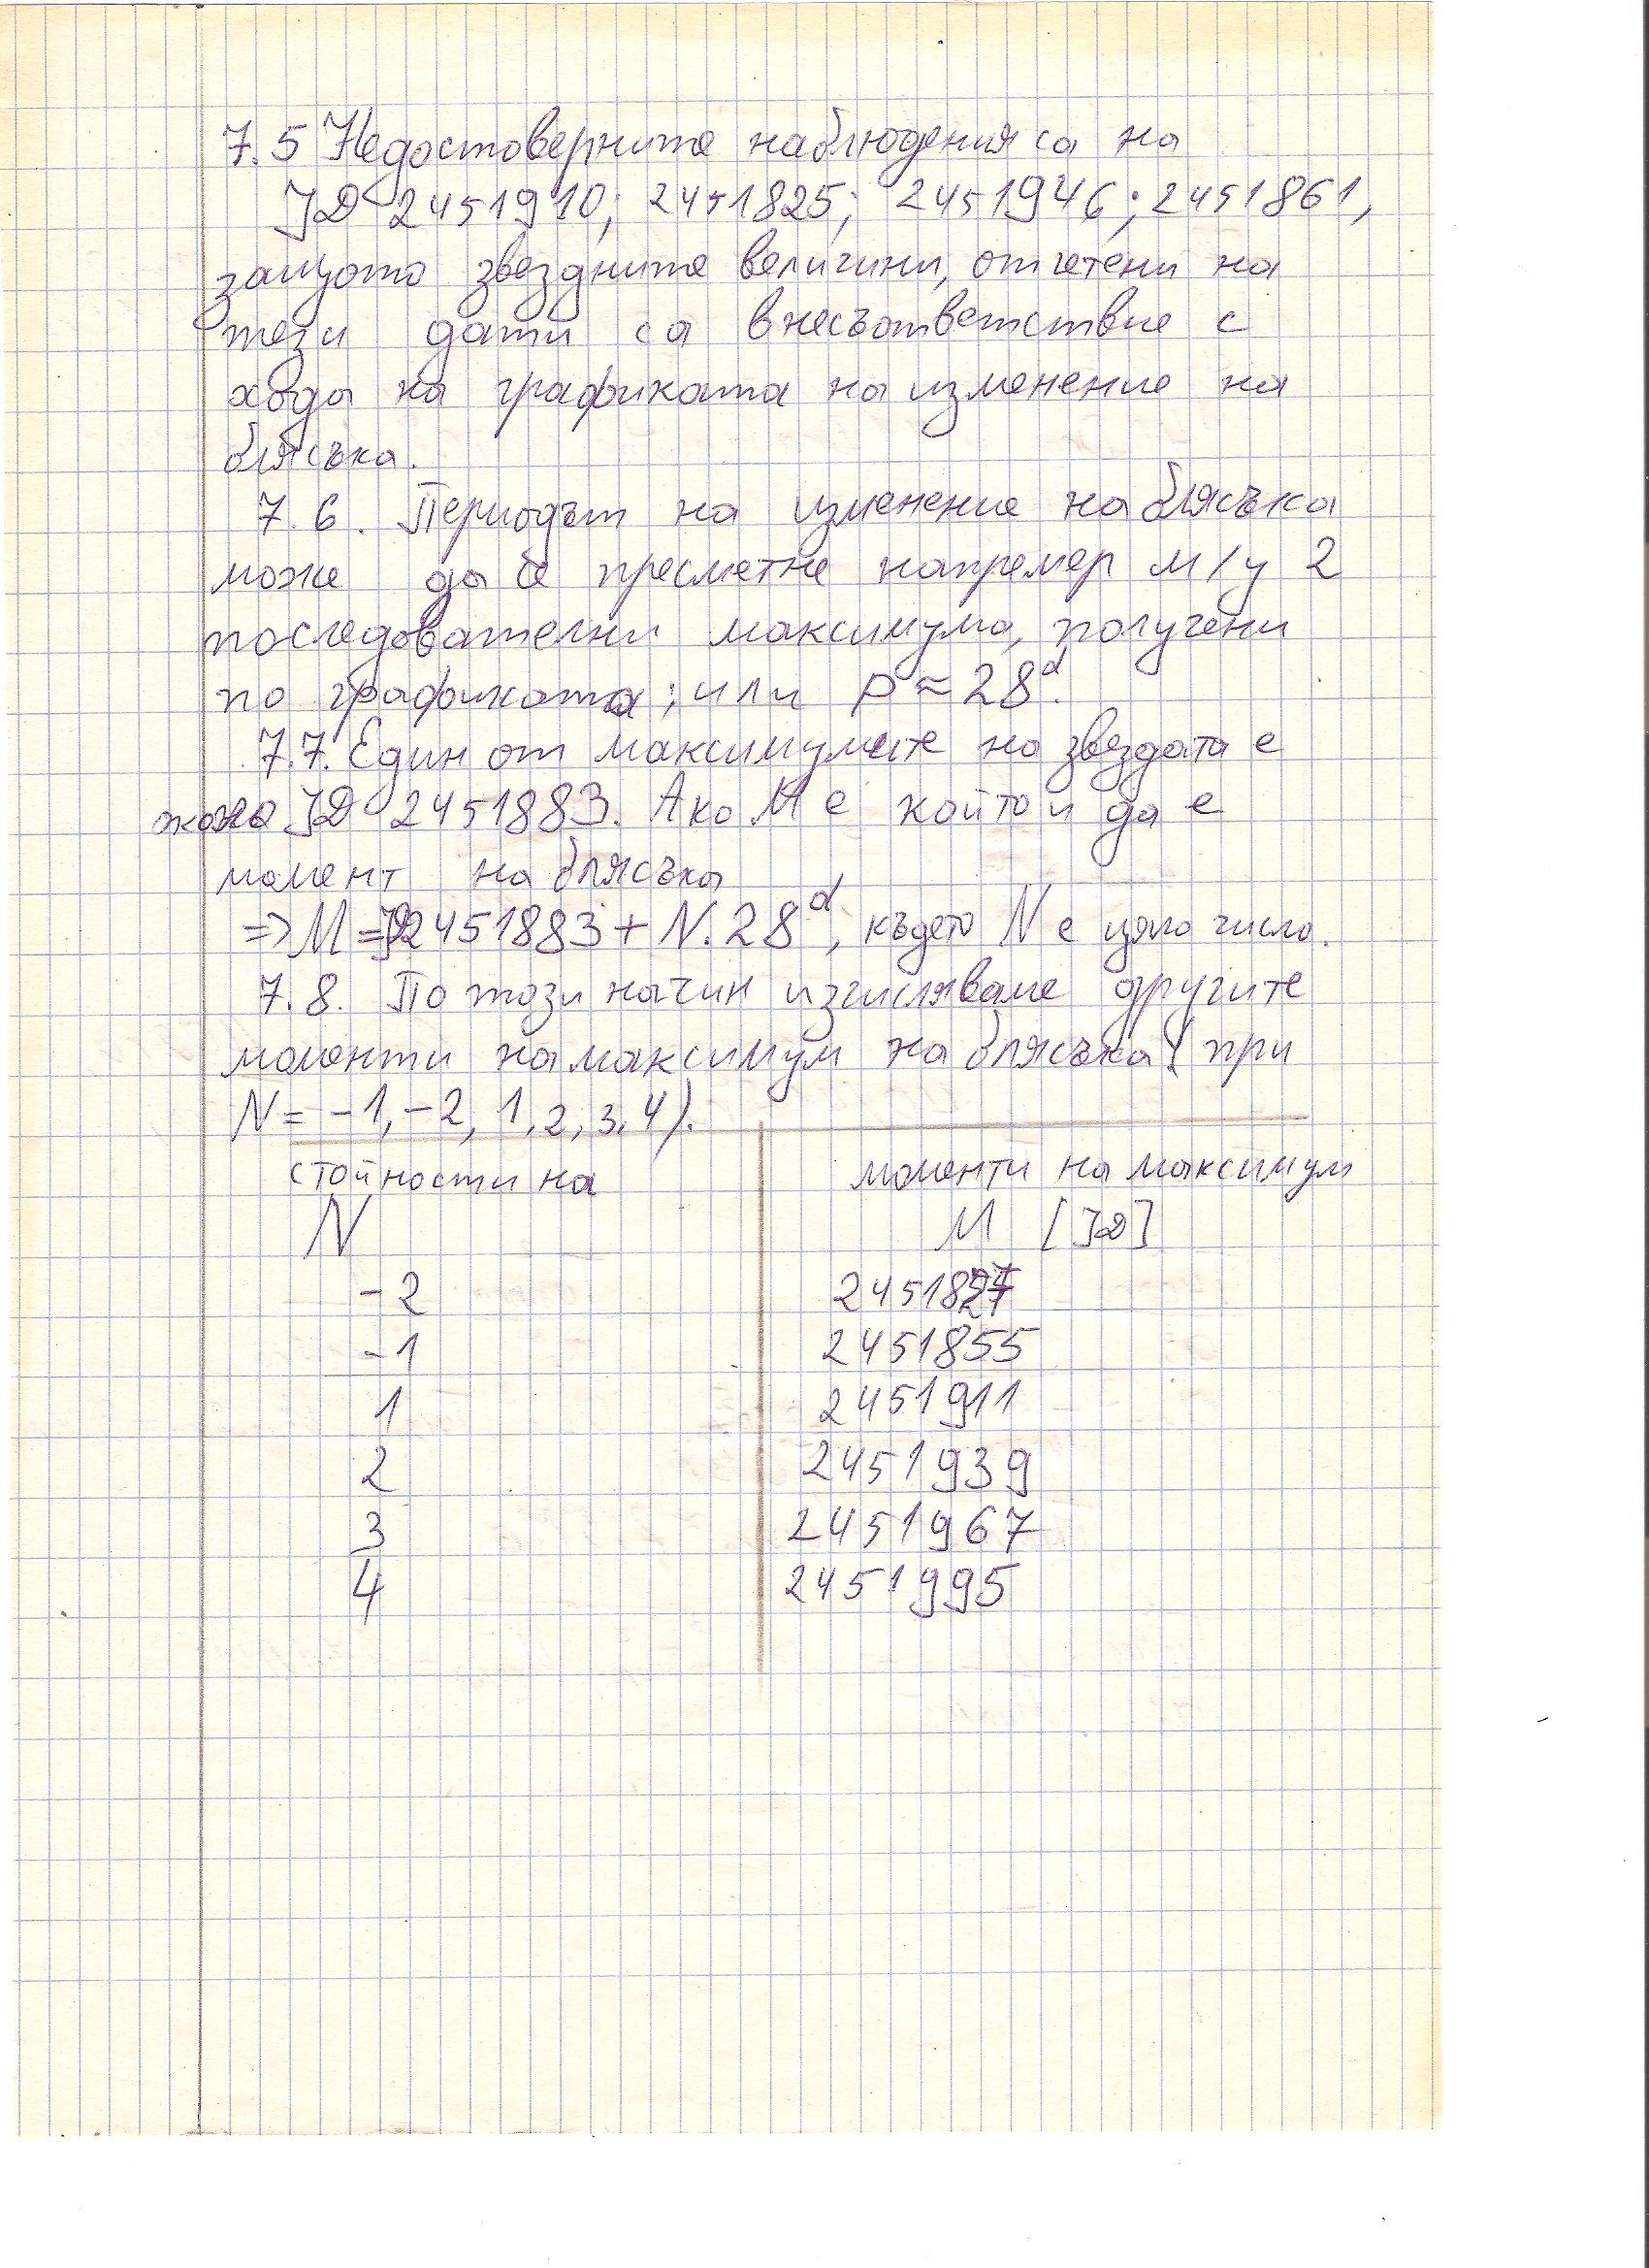 7.5 Недостоверните наблюдения са на
JD 2451910; 2451825; 2451946; 2451861,
защото звездните величини, отчетени на
тези дати са в несъответствие с
хода на графиката на изменение на
блясъка.
7.6. Периодът на изменение на блясъка
може да се пресметне напремер м/у 2
последователни максимума, получени
по графиката; или P ≈ 28ᵈ.
7.7. Един от максимумите на звездата е
JD 2451883. Ако M е който и да е
момент на блясъка
=> M = JD2451883 + N.28ᵈ, където N е цяло число.
7.8. По този начин изчисляваме другите
моменти на максимум на блясъка (при
N = -1, -2, 1, 2, 3, 4).
стойности на моменти на максимум
N M [JD]
-2 2451827
-1 2451855
1 2451911
2 2451939
3 2451967
4 2451995